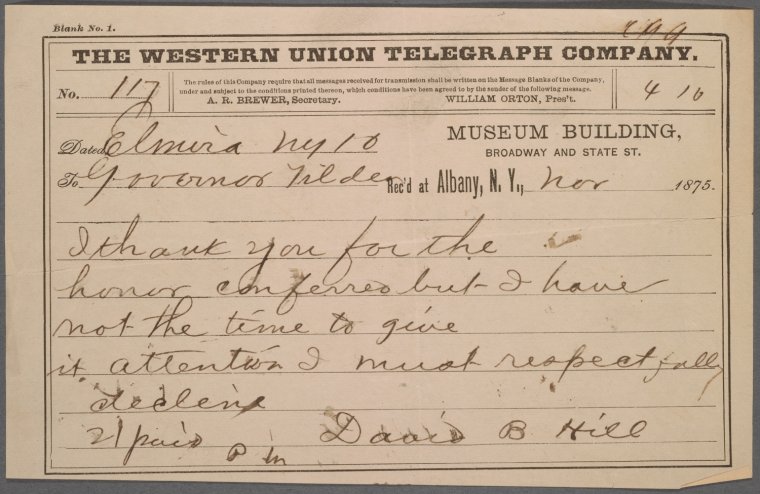 Blank No. 1.
THE WESTERN UNION TELEGRAPH COMPANY.
No. 117
The rules of this Company require that all messages received for transmission shall be written on the Message Blanks of the Company,
under and subject to the conditions printed thereon, which conditions have been agreed to by the sender of the following message.
A. R. BREWER, Secretary. WILLIAM ORTON, Pres't.
4 10
Dated Elmira NY 10
MUSEUM BUILDING,
BROADWAY AND STATE ST.
To Governor Tilden
Rec'd at Albany, N. Y., Nov 1875.
I thank you for the
honor conferred but I have
not the time to give
it attention I must respectfully
decline
David B Hill
21 paid